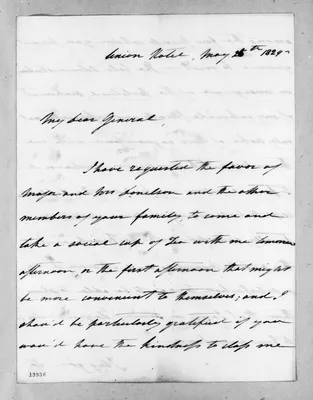 Union Hotel, May 26th 1829
My dear General,
I have requested the favor of
Major and Mrs Donelson and the other
members of your family, to come and
take a social cup of Tea with me tomorrow
afternoon, or the first afternoon that might
be more convenient to themselves, and I
shou'd be particularly gratified if you
wou'd have the kindness to class me
13936